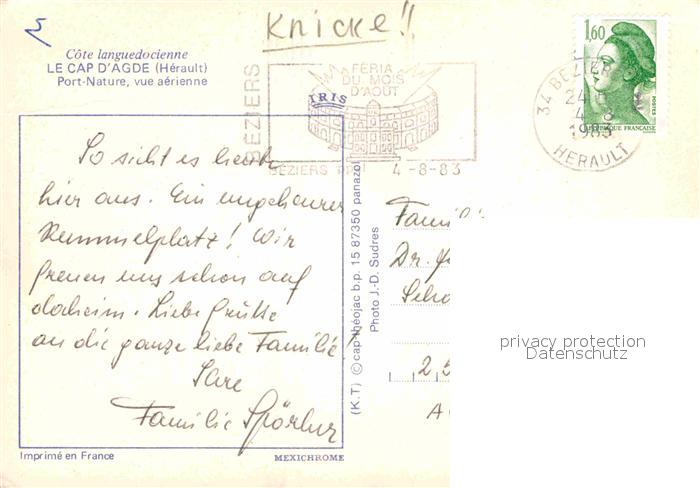 5
Knicke!!
Côte languedocienne
LE CAP D'AGDE (Hérault)
Port-Nature, vue aérienne
BÉZIERS
FÉRIA
DU MOIS
D'AOUT
IRIS
BÉZIERS PPAL
4-8-83
34 BEZIERS
24
4-8
1983
HERAULT
1,60
POSTES
REPUBLIQUE FRANÇAISE
So sieht es heute
hier aus. Ein ungeheurer
Rummelplatz! Wir
freuen uns schon auf
daheim. Liebe Grüße
an die ganze liebe Familie!
Familie
(K.T) © cap-théojac b.p. 15 87350 panazol
Photo J.-D. Sudres
Famil
Dr.
2
A
privacy protection
Datenschutz
Imprimé en France
MEXICHROME